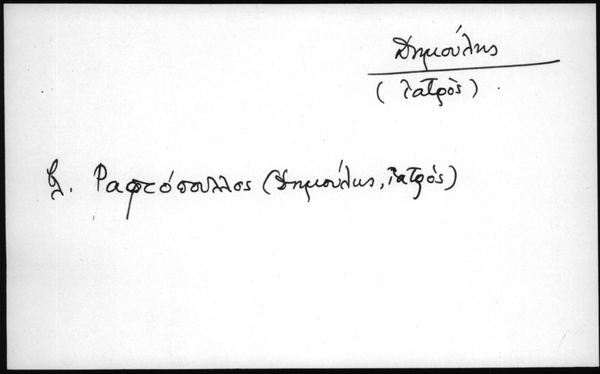 Δημούλης
(ἰατρὸς)
βλ. Ραφτόπουλλος (Δημούλης, ἰατρός)